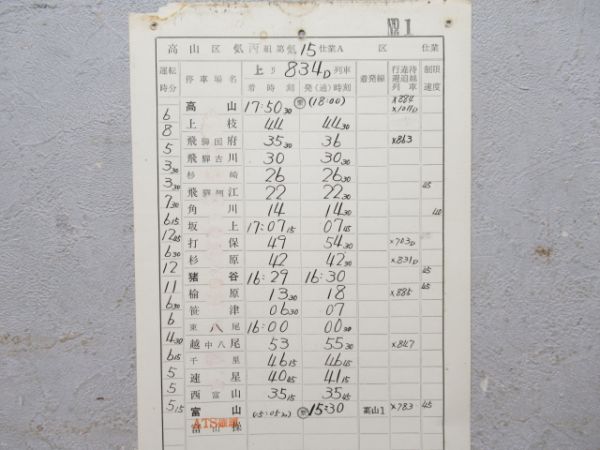 № 1
高山区 気丙組 第気15仕業A 区 仕業
運転時分 停車場名 上り 834D 列車 着発線 行違待避追越列車 制限速度
着時刻 発(通)時刻
高山 17:50 30 (18:00) ×884 ×1011D
6
上枝 44 44 30
8
飛騨国府 35 30 36 ×863
5
飛騨古川 30 30 30
3 30
杉崎 26 26 30
3 30
飛騨細江 22 22 30 45
7 30
角川 14 14 30 40
6 15
坂上 17:07 15 07 45
12 45
打保 49 54 30 ×703D
6 30
杉原 42 42 30 ×831D
12
猪谷 16:29 16:30 65
11
楡原 13 30 18 ×885 65
6 30
笹津 06 30 07
6
東八尾 16:00 00 30
4 30
越中八尾 53 55 30 ×847
6 15
千里 46 15 46 45
5
速星 40 45 41 15
5
西富山 35 15 35 45
5 15
富山 (15:05 30) 15:30 高山1 ×783 45
ATS確認